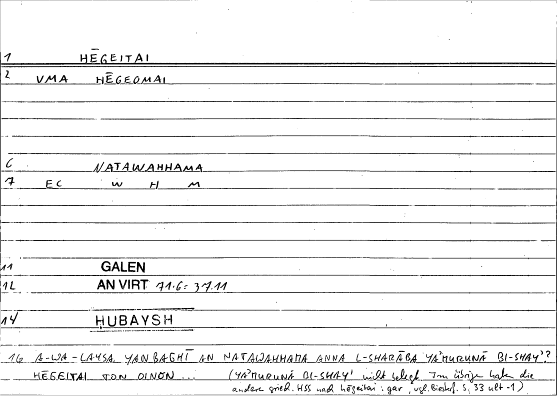 1 HĒGEITAI
2 VMA HĒGEOMAI
6 NATAWAHHAMA
7 EC W H M
11 GALEN
12 AN VIRT 71.6 = 37.11
14 HUBAYSH
16 A-WA-LAYSA YANBAGHĪ AN NATAWAHHAMA ANNA L-SHARĀBA YA'MURUNĀ BI-SHAY'?
HĒGEITAI TON OINON ... (YA'MURUNĀ BI-SHAY' nicht belegt. Im übrigen haben die
andere griech. HSS nach hēgeitai: gar, vgl. S. 33 ult -1)